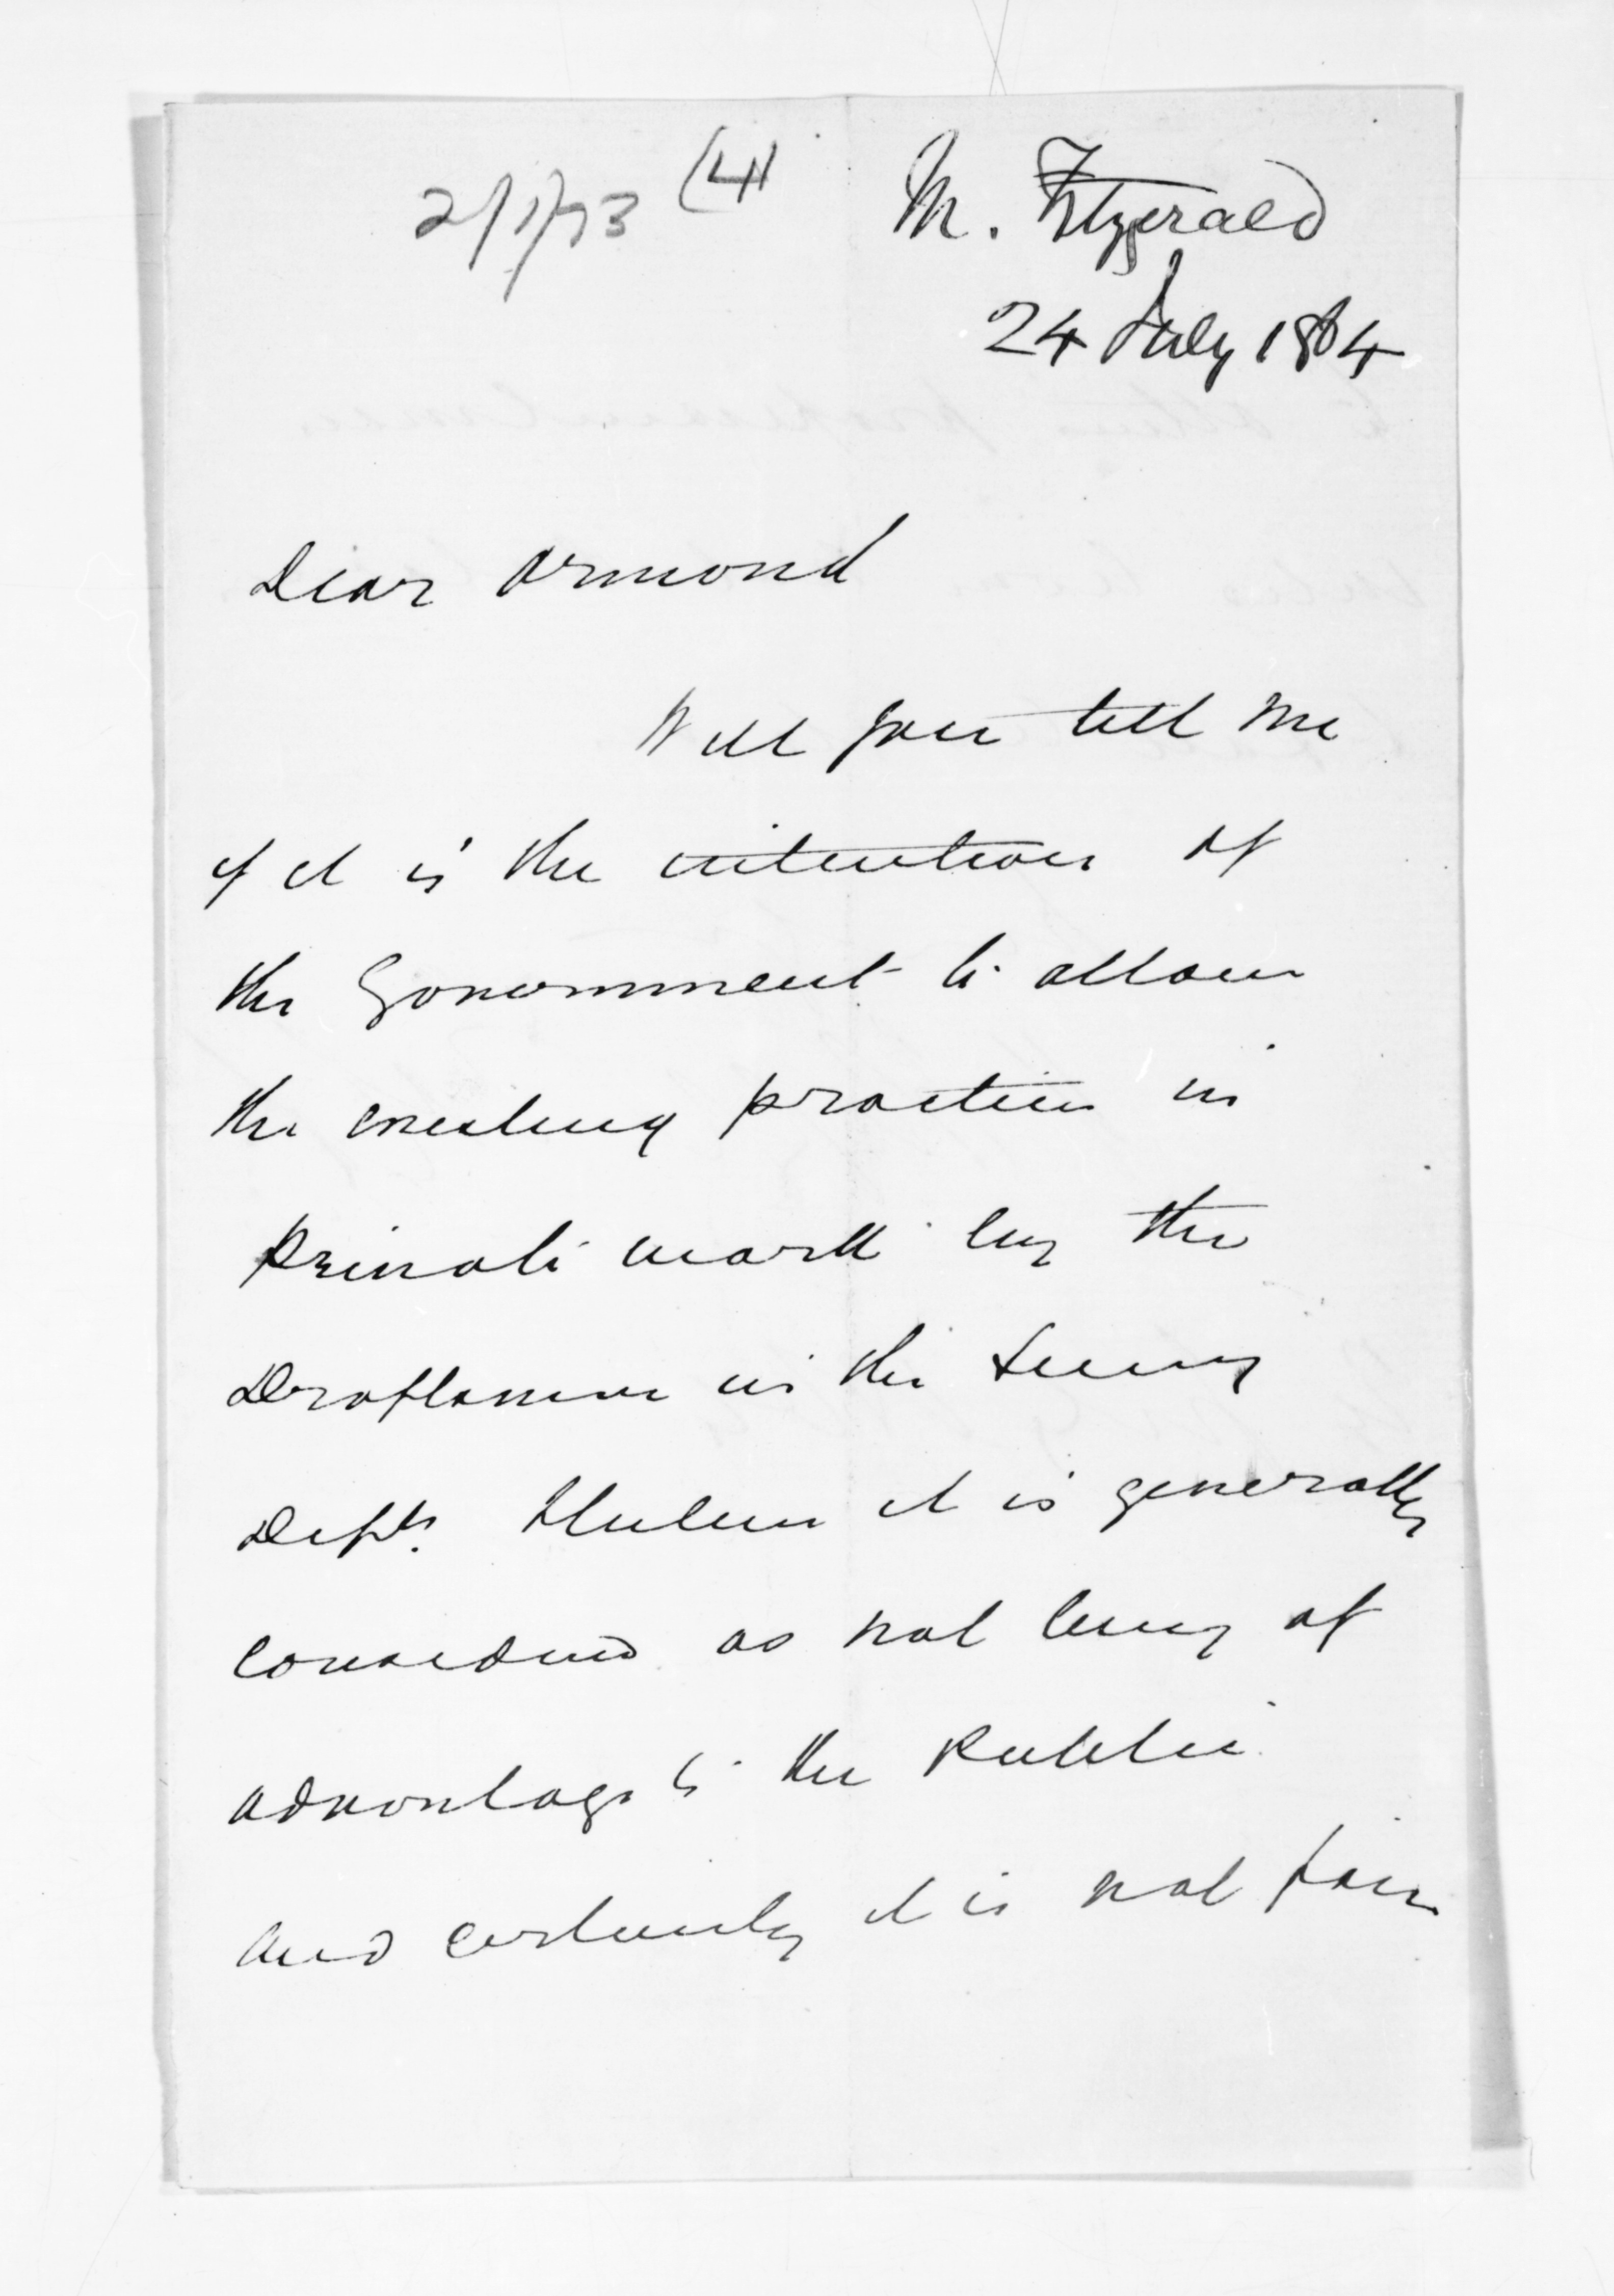 2/1/73 (4)
M. Fitzgerald
24 July 1864
Dear Ormond
Will you tell me
if it is the intention of
the Government to allow
the existing practice in
private work by the
Draftsmen in the Survey
Dept. it is generally
considered as not being of
advantage to the Public
and certainly it is not fair